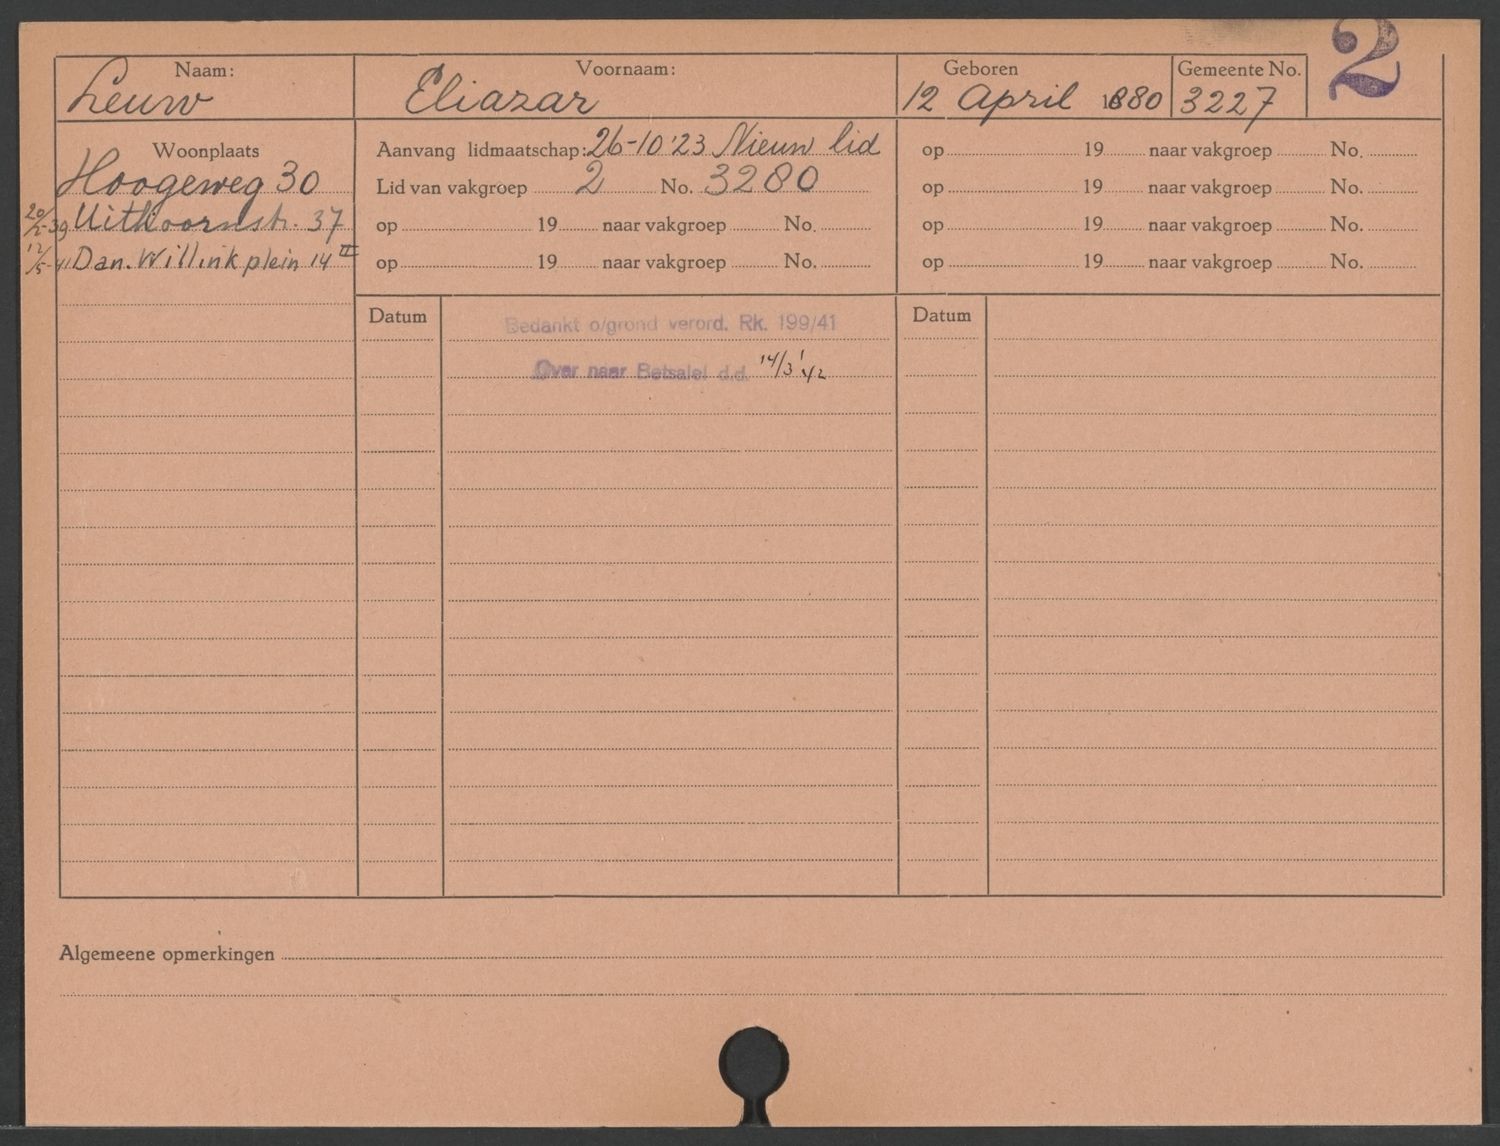 2
Naam: Voornaam: Geboren Gemeente No.
Leuw Eliazar 12 April 1880 3227
Woonplaats
Hoogeweg 30
20/2-39 Uithoornstr. 37
12/5-41 Dan. Willinkplein 14 II
Aanvang lidmaatschap: 26-10'23 Nieuw lid
Lid van vakgroep 2 No. 3280
op 19 naar vakgroep No.
op 19 naar vakgroep No.
op 19 naar vakgroep No.
op 19 naar vakgroep No.
op 19 naar vakgroep No.
op 19 naar vakgroep No.
Datum
Bedankt o/grond verord. Rk. 199/41
Over naar Betsalel d.d. 14/3'42
Datum
Algemeene opmerkingen